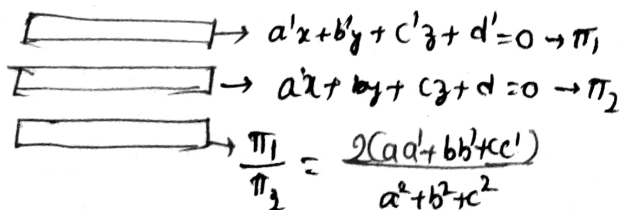 → a'x + b'y + c'z + d' = 0 → π₁
→ a'x + by + cz + d = 0 → π₂
→ π₁/π₂ = 2(aa' + bb' + cc')/a² + b² + c²